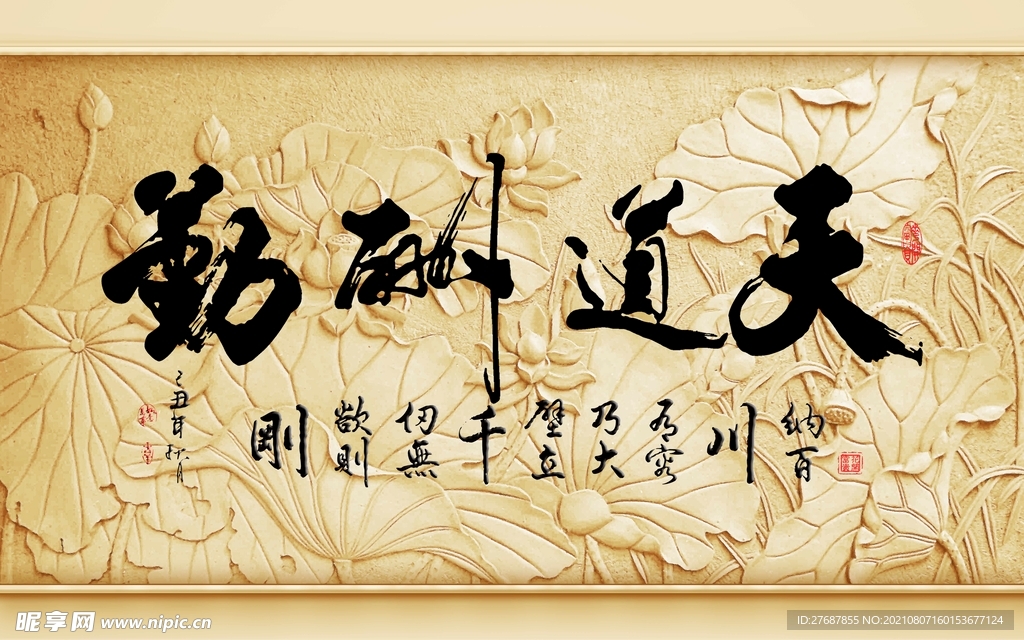 天道酬勤
纳百川有容乃大壁立千仞無欲則剛
己丑年
昵享网 www.nipic.cn
ID:27687855 NO:20210807160153677124